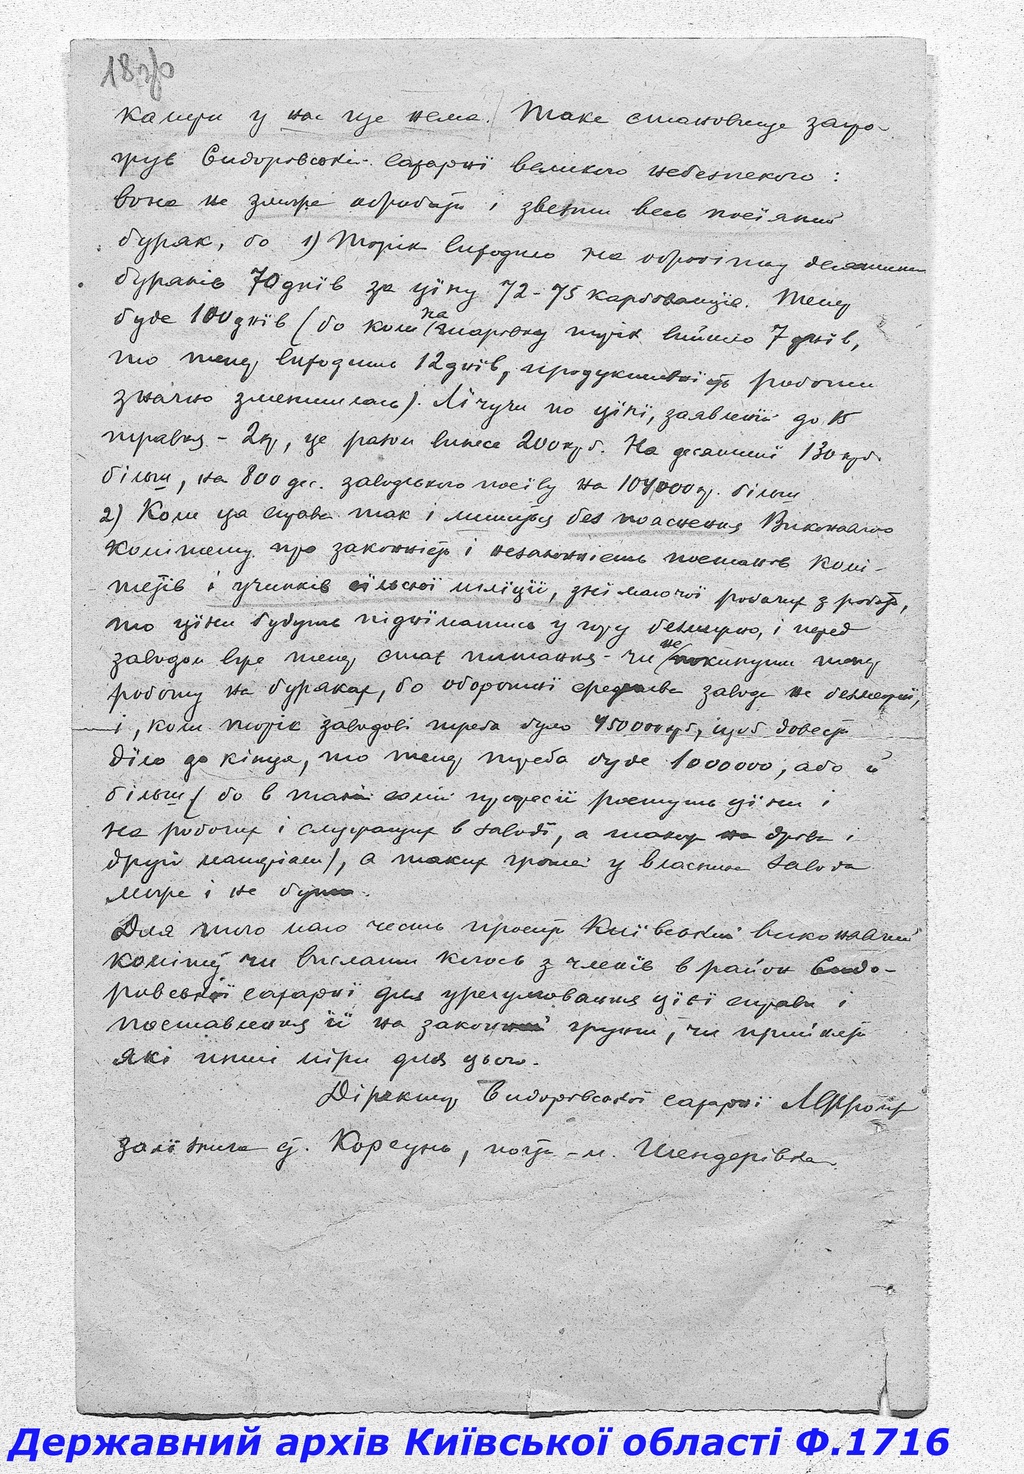 18зр
камери у нас ще нема. Таке становище загро-
жує Сидорівській сахарні великою небезпекою:
вона не зможе обробити і звезти весь посіяний
буряк, бо 1) Торік виходило на обробітку десятини
буряків 70 днів за ціну 72-75 карбованців. Тепер
буде 100 днів (бо коли на шаровку торік вийшло 7 днів,
то тепер виходить 12 днів, продуктивність роботи
значно зменшилась). Лічучи по ціні, заявленій до 15
травня - 2 кр, це разом винесе 200 крб. На десятині 130 крб.
більш, на 800 дес. заводського посіву на 104000 кр. більш
2) Коли ця справа так і лишиться без пояснення Виконавчого
Комітету про законність і незаконність постанов комі-
тетів і учинків сільської міліції, знімаючої робочих з роботи,
то ціни будуть підніматись у гору безмірно, і перед
заводом вже тепер стає питання - чи не покинути тепер
роботу на буряках, бо оборотні средства завода не безмежні,
і, коли торік заводові треба було 450000 крб, щоб довести
діло до кінця, то тепер треба буде 1000000, або й
більш (бо в такій самій прогресії ростуть ціни і
на робочих і служащих в заводі, а також на дрова і
другі матеріали), а таких грошей у власника завода
може і не бути.
Для того маю честь просить Київський виконавчий
комітет чи вислати когось з членів в район Сидо-
рівської сахарні для урегулювання цієї справи і
поставлення її на законний грунт, чи прийнять
які инші міри для цього.
Діректор Сидорівської сахарні
залізнича ст. Корсунь, пошт - м. Шендерівка.
Державний архів Київської області Ф.1716